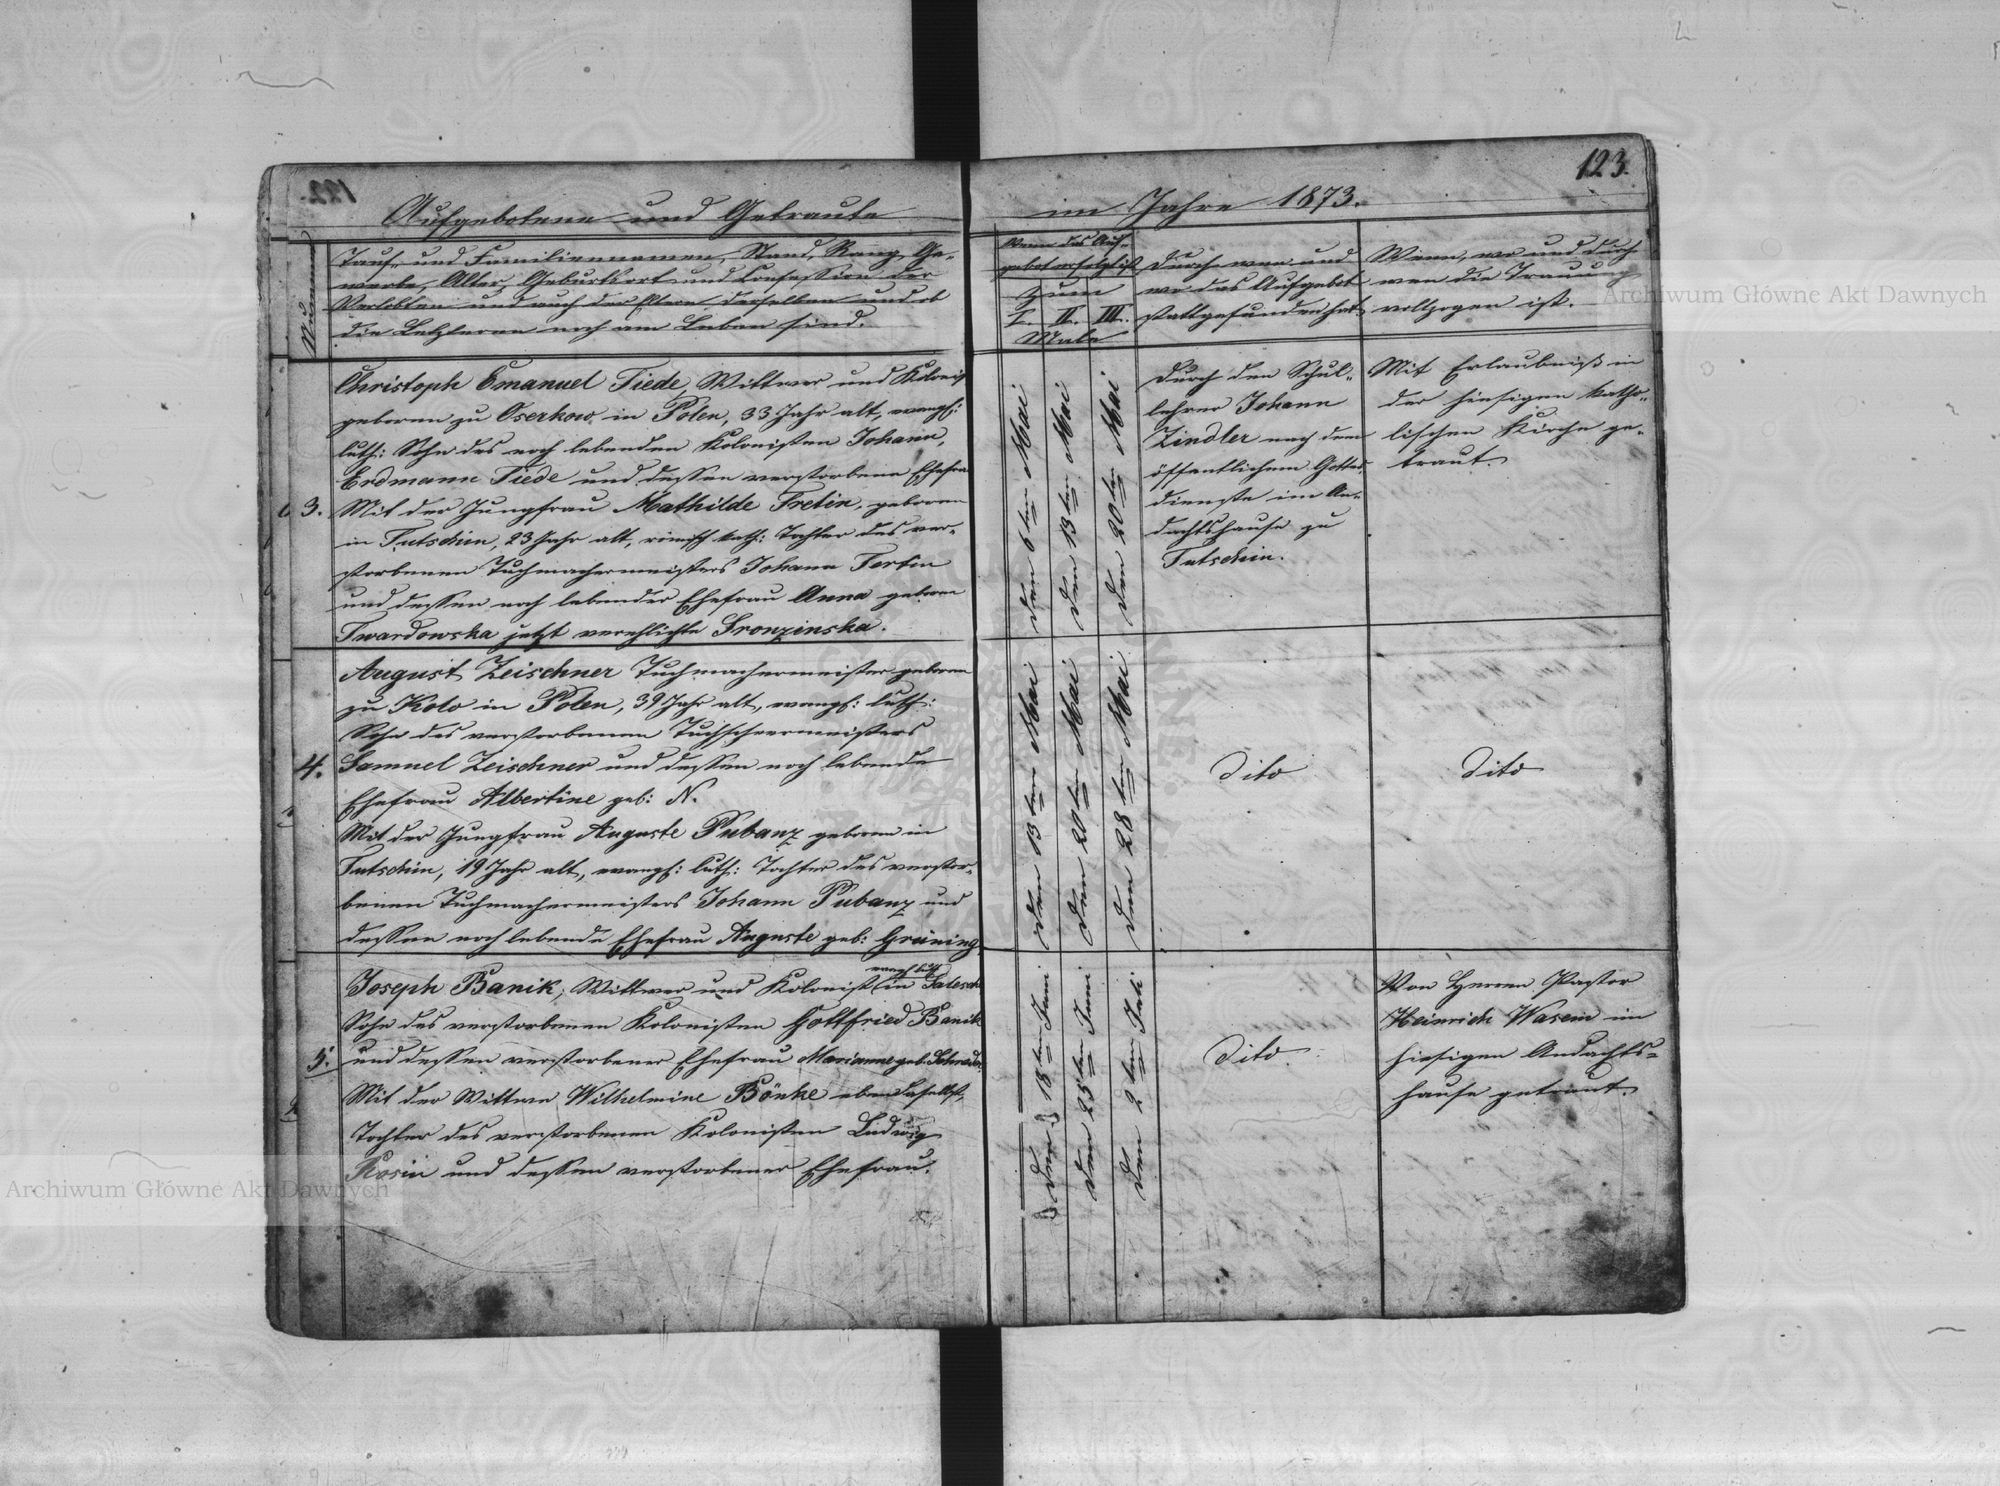 122.
Aufgebotene und Getraute
Nummer
Tauf- und Familiennamen, Stand, Rang, Ge-
werbe, Alter, Geburtsort und Confession der
Verlobten und auch der Eltern derselben und ob
die Letzteren noch am Leben sind.
Christoph Emanuel Tiede, Wittwer und Kolonist
geboren zu Oserkow in Polen, 33 Jahr alt, evangl:
luth: Sohn des noch lebenden Kolonisten Johann,
Erdmann Tiede und dessen verstorbene Ehefrau
3. Mit der Jungfrau Mathilde Fretin, geboren
in Tutschin, 23 Jahr alt, römisch kath: Tochter des ver-
storbenen Tuchmachermeisters Johann Fertin
und dessen noch lebender Ehefrau Anna geboren
Twardowska jetzt verehlichte Sronzinska.
August Zeischner Tuchmachermeister geboren
zu Kolo in Polen, 39 Jahr alt, evangl: luth:
Sohn des verstorbenen Tuchscheermeisters
4. Samuel Zeischner und dessen noch lebende
Ehefrau Albertine geb: N.
Mit der Jungfrau Auguste Pubanz geboren in
Tutschin, 19 Jahr alt, evangl: luth: Tochter des verstor-
benen Tuchmachermeisters Johann Pubanz und
dessen noch lebende Ehefrau Auguste geb: Grüning.
evangl luth
Joseph Banik, Wittwer und Kolonist in
Sohn des verstorbenen Kolonisten Gottfried Banik
5. und dessen verstorbener Ehefrau Marianne geb.
Mit der Wittwe Wilhelmine Bönke ebendaselbst,
Tochter des verstorbenen Kolonisten Ludwig
Rosin und dessen verstorbener Ehefrau.
123.
im Jahre 1873.
Wann das Auf-
gebot erfolgt ist
zum
I. II. III.
Male
Durch wen und
wo das Aufgebot
stattgefunden hat
Wann, wo und durch
wen die Trauung
vollzogen ist.
den 6ten Mai
den 13ten Mai
den 20ten Mai
Durch den Schul-
lehrer Johann
Zindler nach dem
öffentlichen Gottes-
dienste im An-
dachtshause zu
Tutschin.
Mit Erlaubniß in
der hiesigen katho-
lischen Kirche ge-
traut.
den 13ten Mai
den 20ten Mai
den 28ten Mai
Dito
Dito
den 18ten Juni
den 25ten Juni
den 2ten Juli
Dito.
Von Herrn Pastor
Heinrich Wasem im
hiesigen Andachts-
hause getraut.
Archiwum Główne Akt Dawnych
Archiwum Główne Akt Dawnych